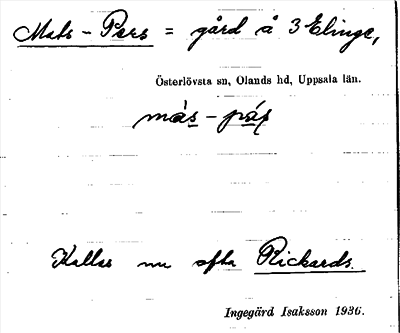 Mats - Pers = gård å 3 Elinge,
Österlövsta sn, Olands hd, Uppsala län.
Kallas nu ofta Rickards.
Ingegärd Isaksson 1936.